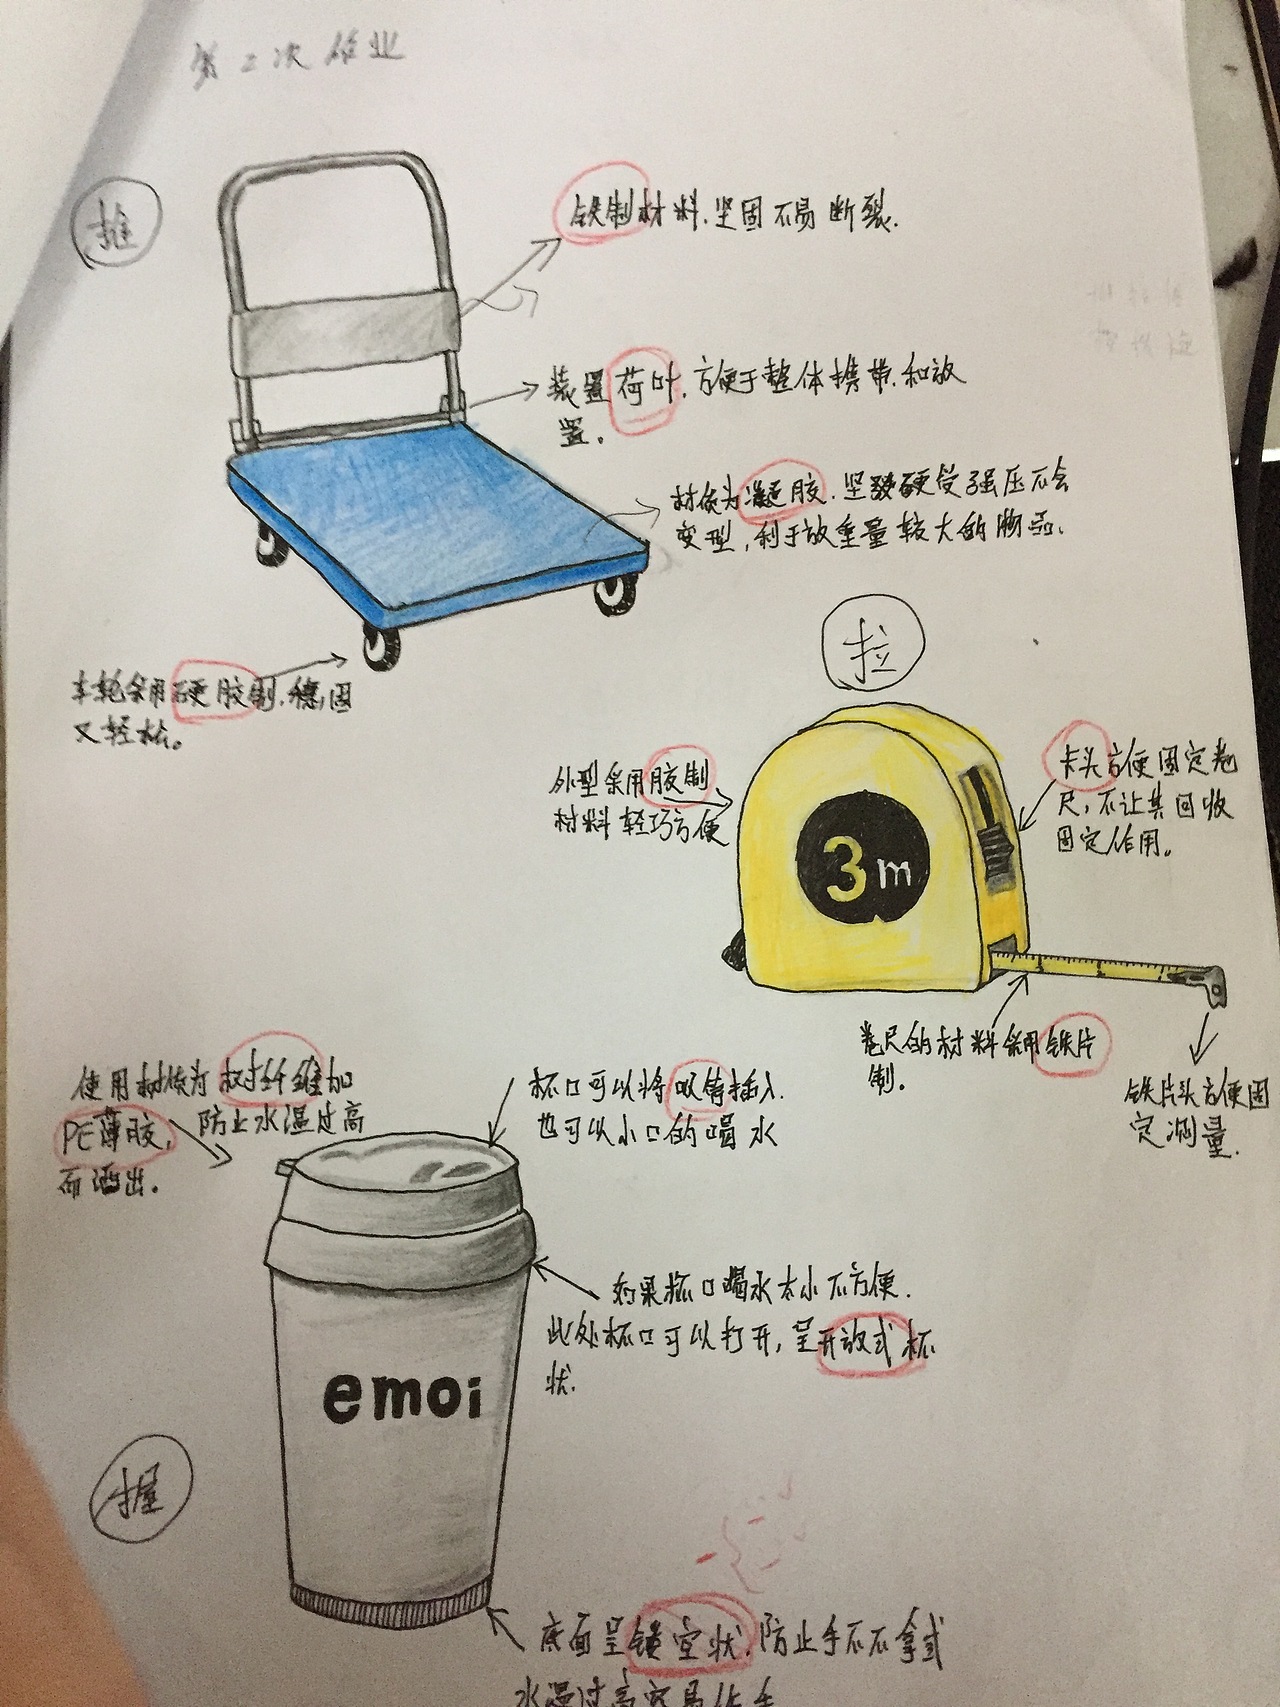 第二次作业
推
铁制材料.坚固不易断裂.
装置荷叶,方便于整体携带.和放
置.
材依为 胶.坚 硬受强压不会
变型,利于放重量较大的物品.
车轮采用硬胶制.稳固
又轻松。
拉
外型采用胶制
材料轻巧方便
3m
卡头方便固定卷
尺,不让其回收
固定作用。
卷尺的材料采用铁片
制.
铁片头方便固
定测量.
使用材依为树纤维加
PE薄胶, 防止水温过高
而洒出.
杯口可以将吸 插入.
也可以小口的喝水
如果杯口喝水太小不方便.
此处杯口可以打开,呈开放式杯
状.
emoi
握
底面呈镂空状.防止手不不拿或
水温过高容易